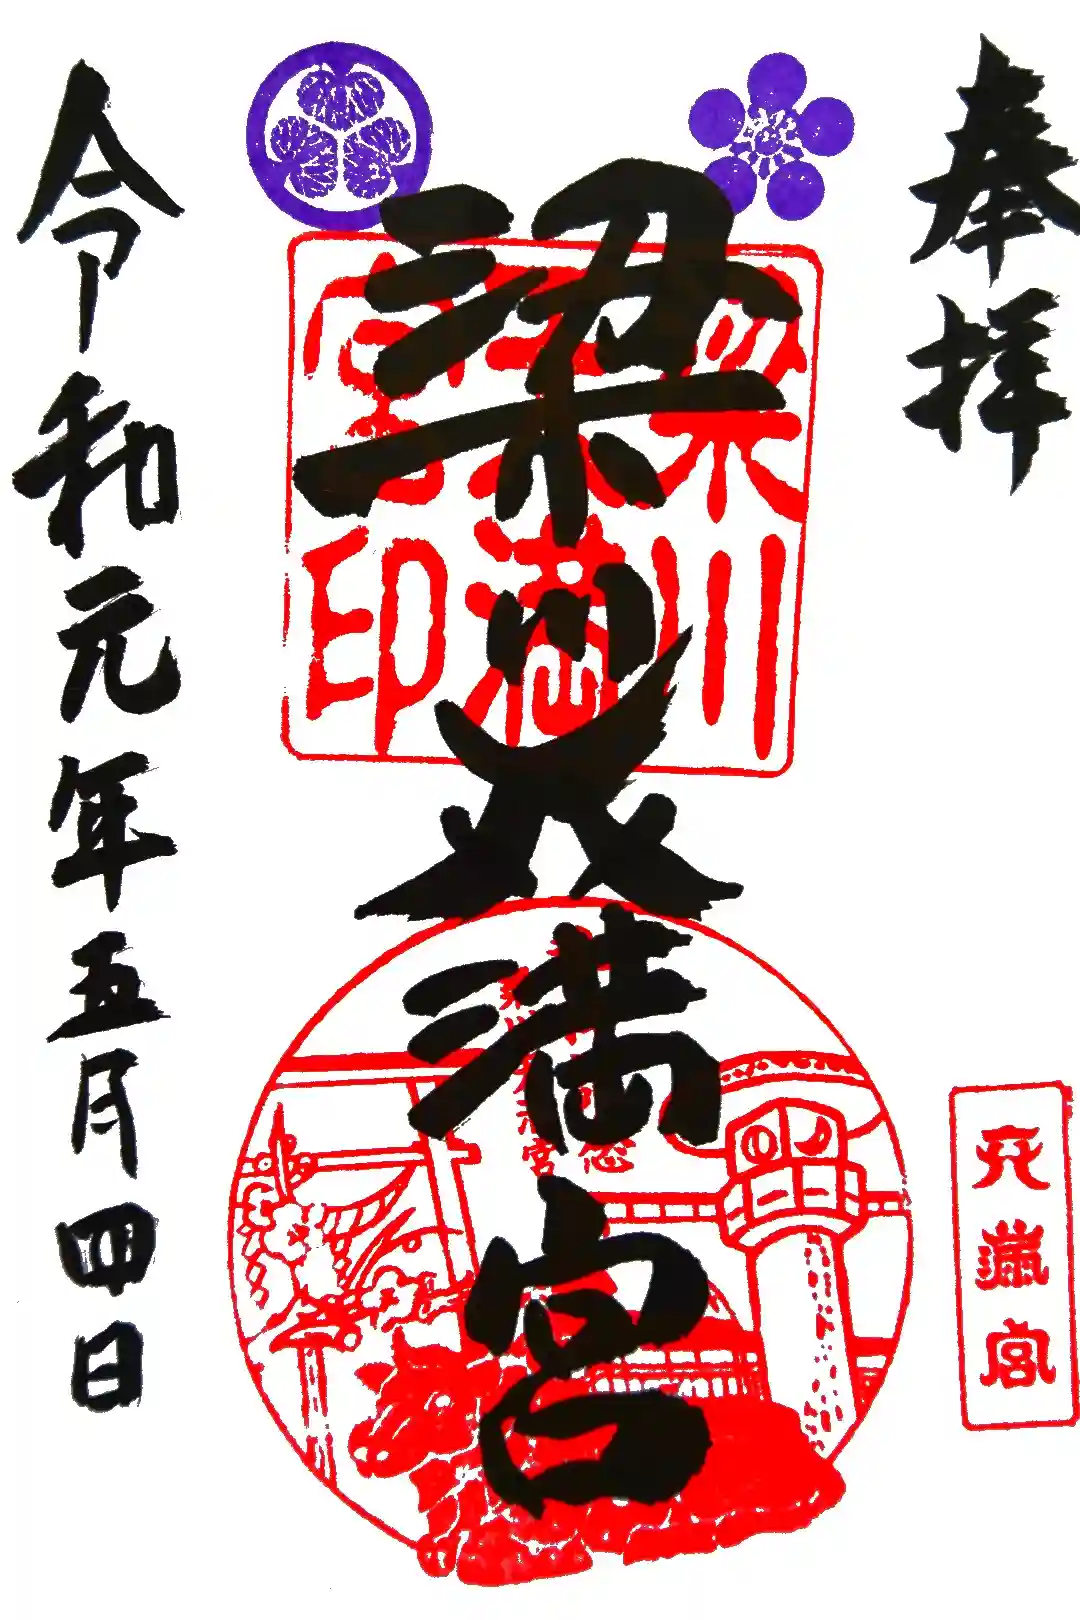 奉拝
天満宮
梁川天満宮
梁川
天満
宮印
令和元年五月四日